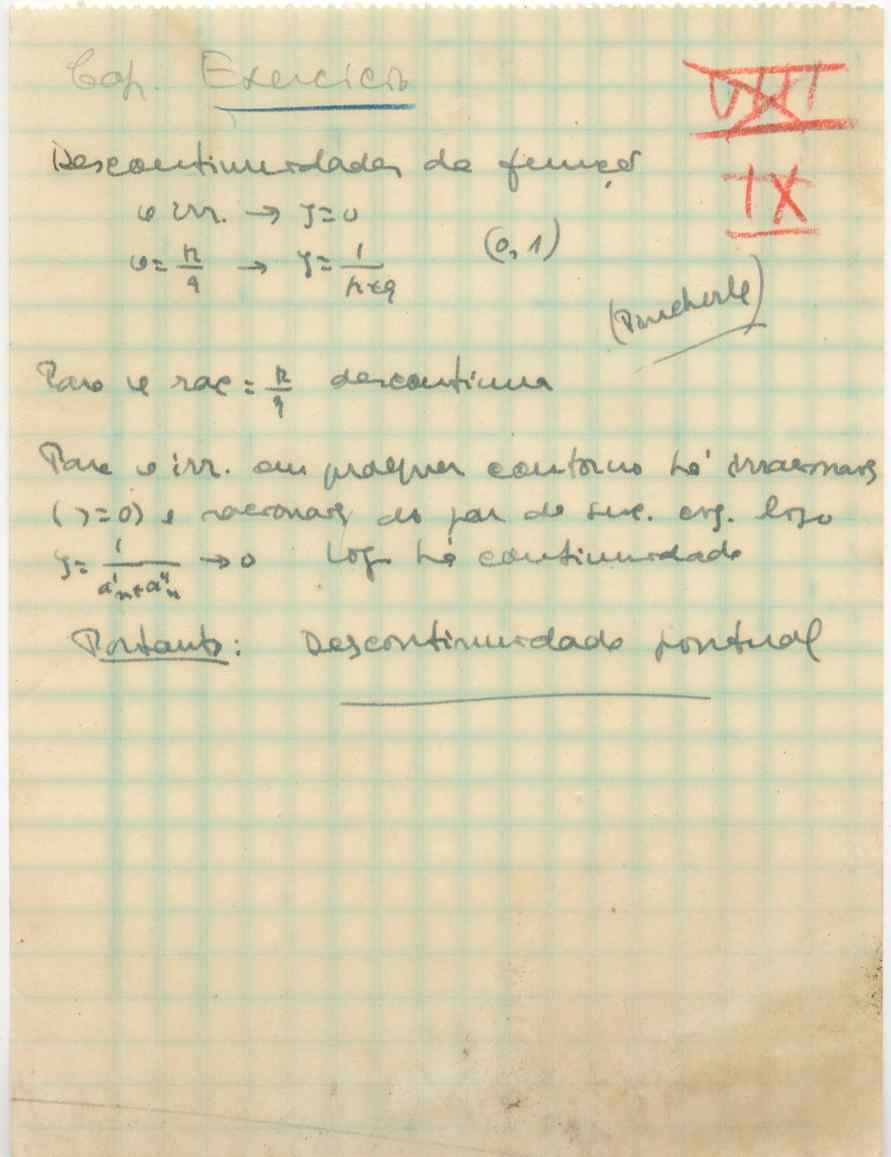 Cap. Exercício
VIII
IX
Descontinuidades da função
x irr. → y=0
(0,1)
x = p/q → y = 1/(p+q)
(Pincherle)
Para x rac = p/q descontinua
Para x irr. em qualquer contorno há irracionais
(y=0) e racionais do par de suc. cvg. logo
y = 1/(a'n+a''n) → 0 Logo há continuidade
Portanto: Descontinuidade pontual